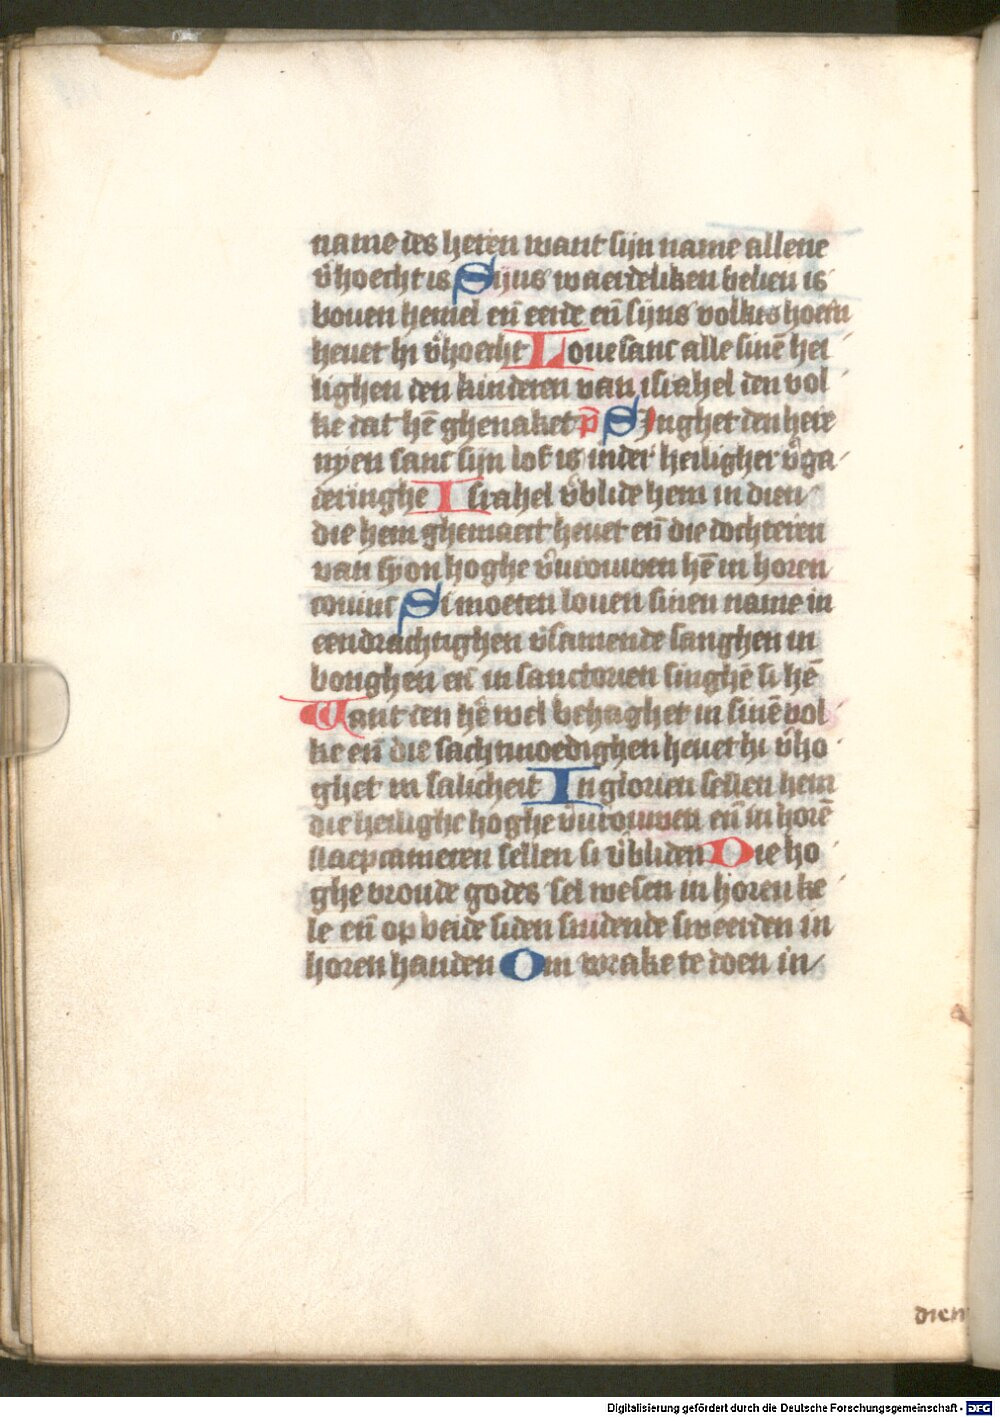 name des heren want sijn name allene
v̄hoecht is Sijns waerdeliken belien is
bouen hemel en̄ eerde en̄ sijns volkis hoern
heuet hi v̄hoecht Loue sanc alle sinē hei
lighen den kinderen van israhel den vol
ke dat hē ghenaket p̄ Singhet den here
nyen sanc sijn lof is inder heiligher v̄ga
deringhe Israhel v̄blide hem in dien
die hem ghemaect heuet en̄ die dochteren
van syon hoghe v̄urouwen hē in horen
coninc Si moeten louen sinen name in
eendrachtighen v̄samende sanghen in
bonghen en̄ in sanctorien singhē si hē
Want den hē wel behaghet in sinē vol
ke en̄ die sachtmoedighen heuet hi v̄ho
ghet in salicheit In glorien sellen hem
die heilighe hoghe v̄urouwen en̄ in horē
slaepcameren sellen si v̄bliden Die ho
ghe vroude godes sel wesen in horen ke
le en̄ op beide siden snidende sweerden in
horen handen Om wrake te doen in
dien
Digitalisierung gefördert durch die Deutsche Forschungsgemeinschaft - DFG